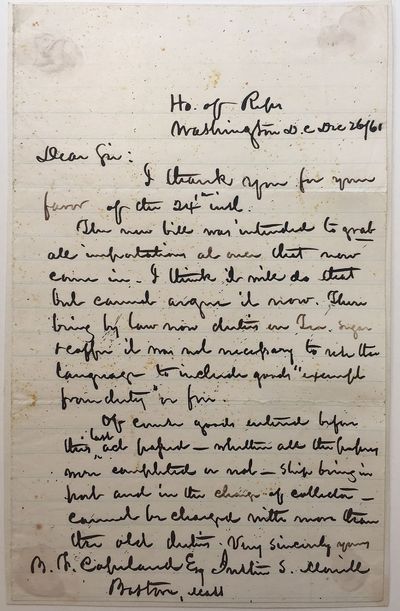 Ho. of Reps
Washington D.C Dec 26/61
Dear Sir:
I thank you for your
favor of the 24th inst.
The new bill was intended to grab
all importations at once that now
come in. I think it will do that
but cannot argue it now. There
being by law now duties on Tea, Sugar
& coffee it was not necessary to use the
language to include goods "exempt
from duty" or free.
Of course goods entered before
this last act passed – whether all the papers
were completed or not – ship being in
port and in the charge of collector –
cannot be charged with more than
the old duties. Very sincerely yours
B. F. Copeland Esq Justin S. Morrill
Boston, Mass